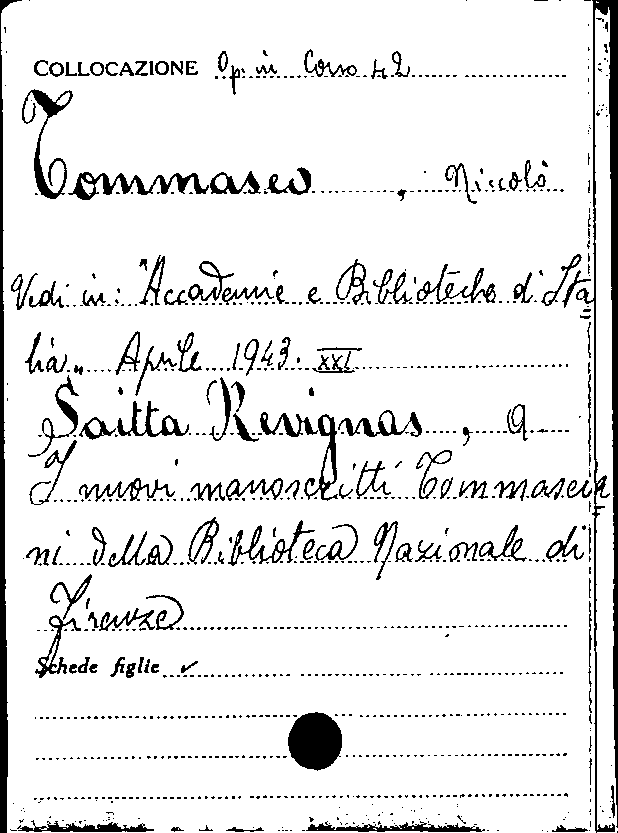 COLLOCAZIONE Op. in Corso 42
Tommaseo, Niccolò
Vedi in: "Accademie e Biblioteche d'Ita
lia„ Aprile 1943. XXI
Saitta Revignas, A
I nuovi manoscritti Tommaseia
ni della Biblioteca Nazionale di
Firenze
Schede figlie ✓